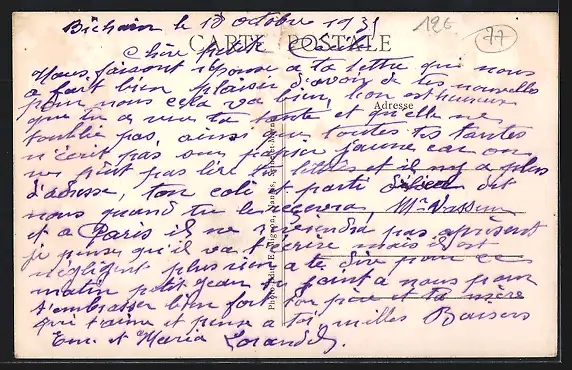 Bichain le 18 octobre 1931
126
77
CARTE POSTALE
Chère petite
Nous faisons réponse a ta lettre qui nous
a fort bien plaisir d'avoir de tes nouvelles
pour nous cela va bien, l'on est heureux
Adresse
que tu a vue ta tante et qu'elle ne
t'oublie pas, ainsi que toutes tes tantes
n'écrit pas sur papier jaune car on
ne peut pas lire tes lettres et il n'y a plus
d'adresse, ton colis et parti dit
nous quand tu le recevras, Mr Vasseur
et a Paris il ne reviendra pas a présent
je pense qu'il va t'écrire mais il est
négligent plus rien a te dire pour ce
matin petit Jean se joint a nous pour
t'embrasser bien fort ton père et ta mère
qui t'aime et pense a toi milles Baisers
Em. et Maria